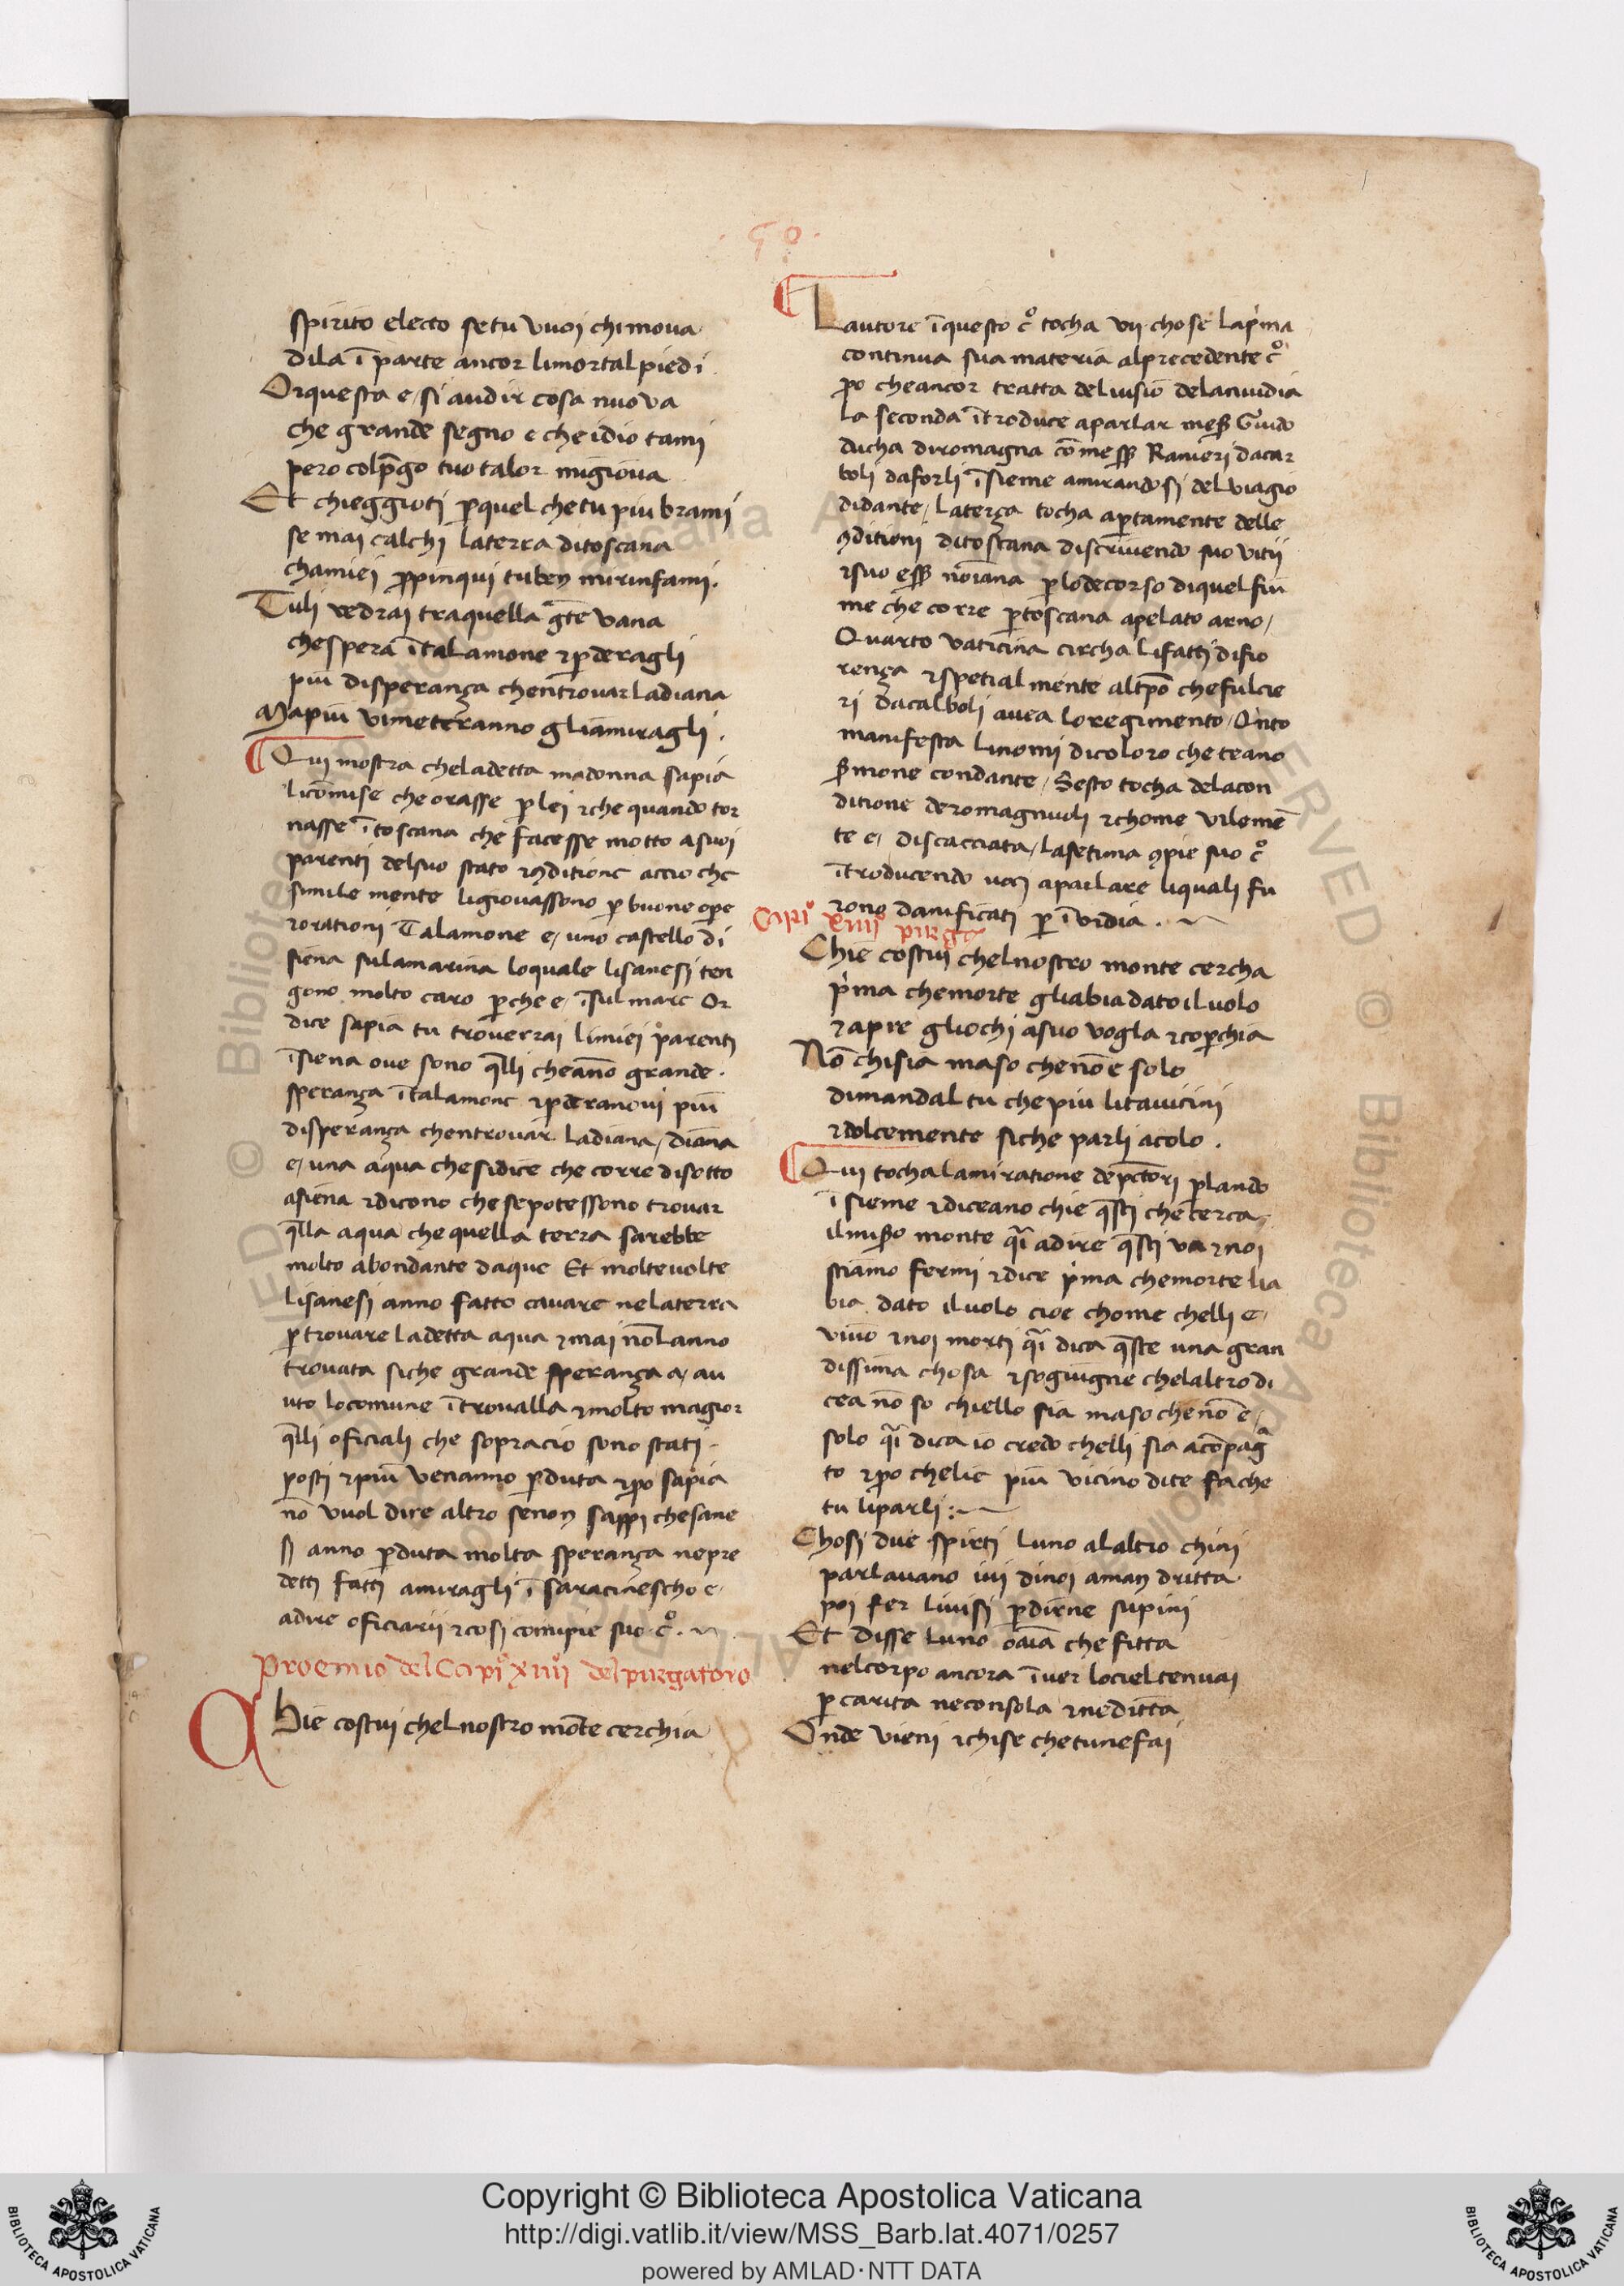 50
spirito electo setu vuoi chimova
dila ī parte ancor limortal piedi
Orquesta e, si audir cosa nuova
che grande segno e che idio tami
pero colp̄go tuo talor mi giova
Et chieggioti p̱quel chetu piu brami
se mai calchi laterra ditoscana
chamiei p̱pinqui tuben mirinfami.
Tuli vedrai traquella gēte vana
chespera ī talamone ⁊p̱deragli
piu disperanza chentrovar ladiana
Mapiu vimeteranno gliamiragli.
Qui mostra cheladetta madonna sapia
licomise che orasse p̱ lei ⁊che quando tor
nasse ī toscana che facesse motto asuoi
parenti delsuo stato ⁊ꝯditione accio che
simile mente ligiovassono p̱ buone ope
rorationi Talamone e, uno castello di
siena sulamarina loquale lisanesi ten
gono molto caro p̱che e, īsul mare Or
dice sapia tu troverrai limiei parenti
īsiena ove sono q̄lli cheāno grande.
speranza ītalamone ⁊p̱deranovi piu
disperanza chentrovar ladiana, diana
e, una aqua chesidice che corre disotto
asiena ⁊dicono chesepotessono trovar
q̄lla aqua che quella terra sarebbe
molto abondante daque Et moltevolte
lisanesi anno fatto cavare nelaterra
p̱trovare ladetta aqua ⁊mai nōlanno
trovata siche grande speranza a, au
uto locomune ītrovalla ⁊molto magior
q̄lli oficiali che sopracio sono stati.
posti ⁊piu venanno p̱duta ⁊p̱o sapia
nō vuol dire altro senon sappi chesane
si anno p̱duta molta speranza nepre
detti fatti amiragli ī saracinescho e,
adire oficiarii ⁊cosi compie suo c°.
Proemio del Capi° xiiii° del purgatoro
Chie costui chel nostro mōte cerchia
Lautore īquesto c° tocha vii chose lap̍ma
continua sua materia alprecedente c°
p̱o cheancor tratta deluisio delaciuidia
la seconda ītroduce aparlar meß Guido
ducha diromagna cō messß Ranieri dacar
boli daforli īsieme amirandosi delviagio
didante, laterza tocha ap̱tamente delle
ꝯditioni ditoscana discrivendo suo vitii
⁊suo eßß p̱lodecorso diquel fiu
me che corre p̱toscana apelato arno,
Quarto vaticina circha lifatti difio
renza ⁊spetial mente altp̄o chefulcie
ri dacalboli avea loregimento, Qnto
manifesta linomi dicoloro che teano
ßmone condante, Sesto tocha delacon
ditione deromagnuoli ⁊chome vilemē
te e, discacciata, lasetima ꝯpie suo c°
ītroducendo voci aparlare liquali fu
rono danificati p̱ īvidia.
Capi° xiiii° purg°
Chie costui chelnostro monte cercha
p̍ma chemorte gliabia dato il volo
⁊apre gliochi asuo vogla ⁊cop̱chia
Nō chisia maso chenōe solo
dimandal tu chepiu litavicini
⁊dolcemente siche parli acolo.
Qui tochalamiratione depctori p̱lando
ī sieme ⁊diceano chie q̄sti che cerca,
ilnrōo monte q̄i adire q̄sti va ⁊noi
stiamo fermi ⁊dice p̍ma chemorte lia
bia dato ilvolo cioe chome chelli e,
vivo ⁊noi morti q̄i dica q̄ste una gran
dissima chosa ⁊sogiugne chelaltro di
cea nō so chiello sia maso che nō e,
solo q̄i dica io credo chelli sia acōpag̅
to ⁊p̱o chelie piu vicino dite fa che
tu liparli:
Chosi due spirti luno alaltro chini
parlavano ivi dinoi aman dritta
poi fer livisi p̱dirne supini
Et disse luno o aīa che fitta
nelcorpo ancora īver lociel tenvai
p̱ carita neconsola ⁊neditta
Onde vieni ⁊chise chetunefai
Copyright © Biblioteca Apostolica Vaticana
http://digi.vatlib.it/view/MSS_Barb.lat.4071/0257
powered by AMLAD·NTT DATA
BIBLIOTECA APOSTOLICA VATICANA
BIBLIOTECA APOSTOLICA VATICANA